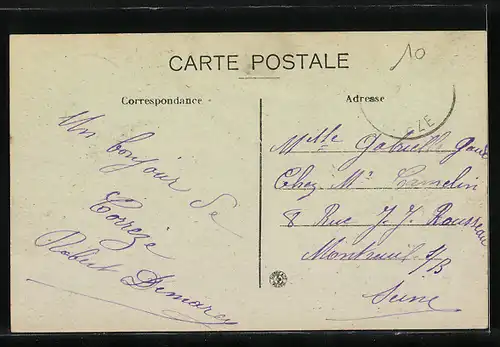 10
CARTE POSTALE
Correspondance
Adresse
ZE
Un bonjour de
Corrèze
Robert
Melle Gabrielle
Chez Mr Camelin
8 Rue J. J. Rousseau
Montreuil s/B
Seine